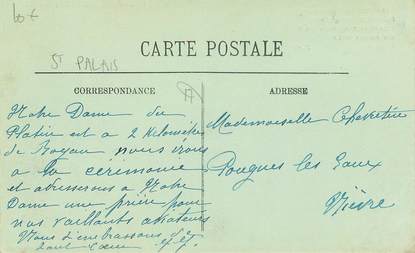 60 €
CARTE POSTALE
ST PALAIS
CORRESPONDANCE
17
ADRESSE
Notre Dame du
Platin est a 2 kilomètres
de Royan nous irons
a la cérémonie
et adresserons a Notre
Dame une prière pour
nos vaillants aviateurs
Nous t'embrassons de
tout Cœur
Mademoiselle
Pougues les Eaux
Nièvre